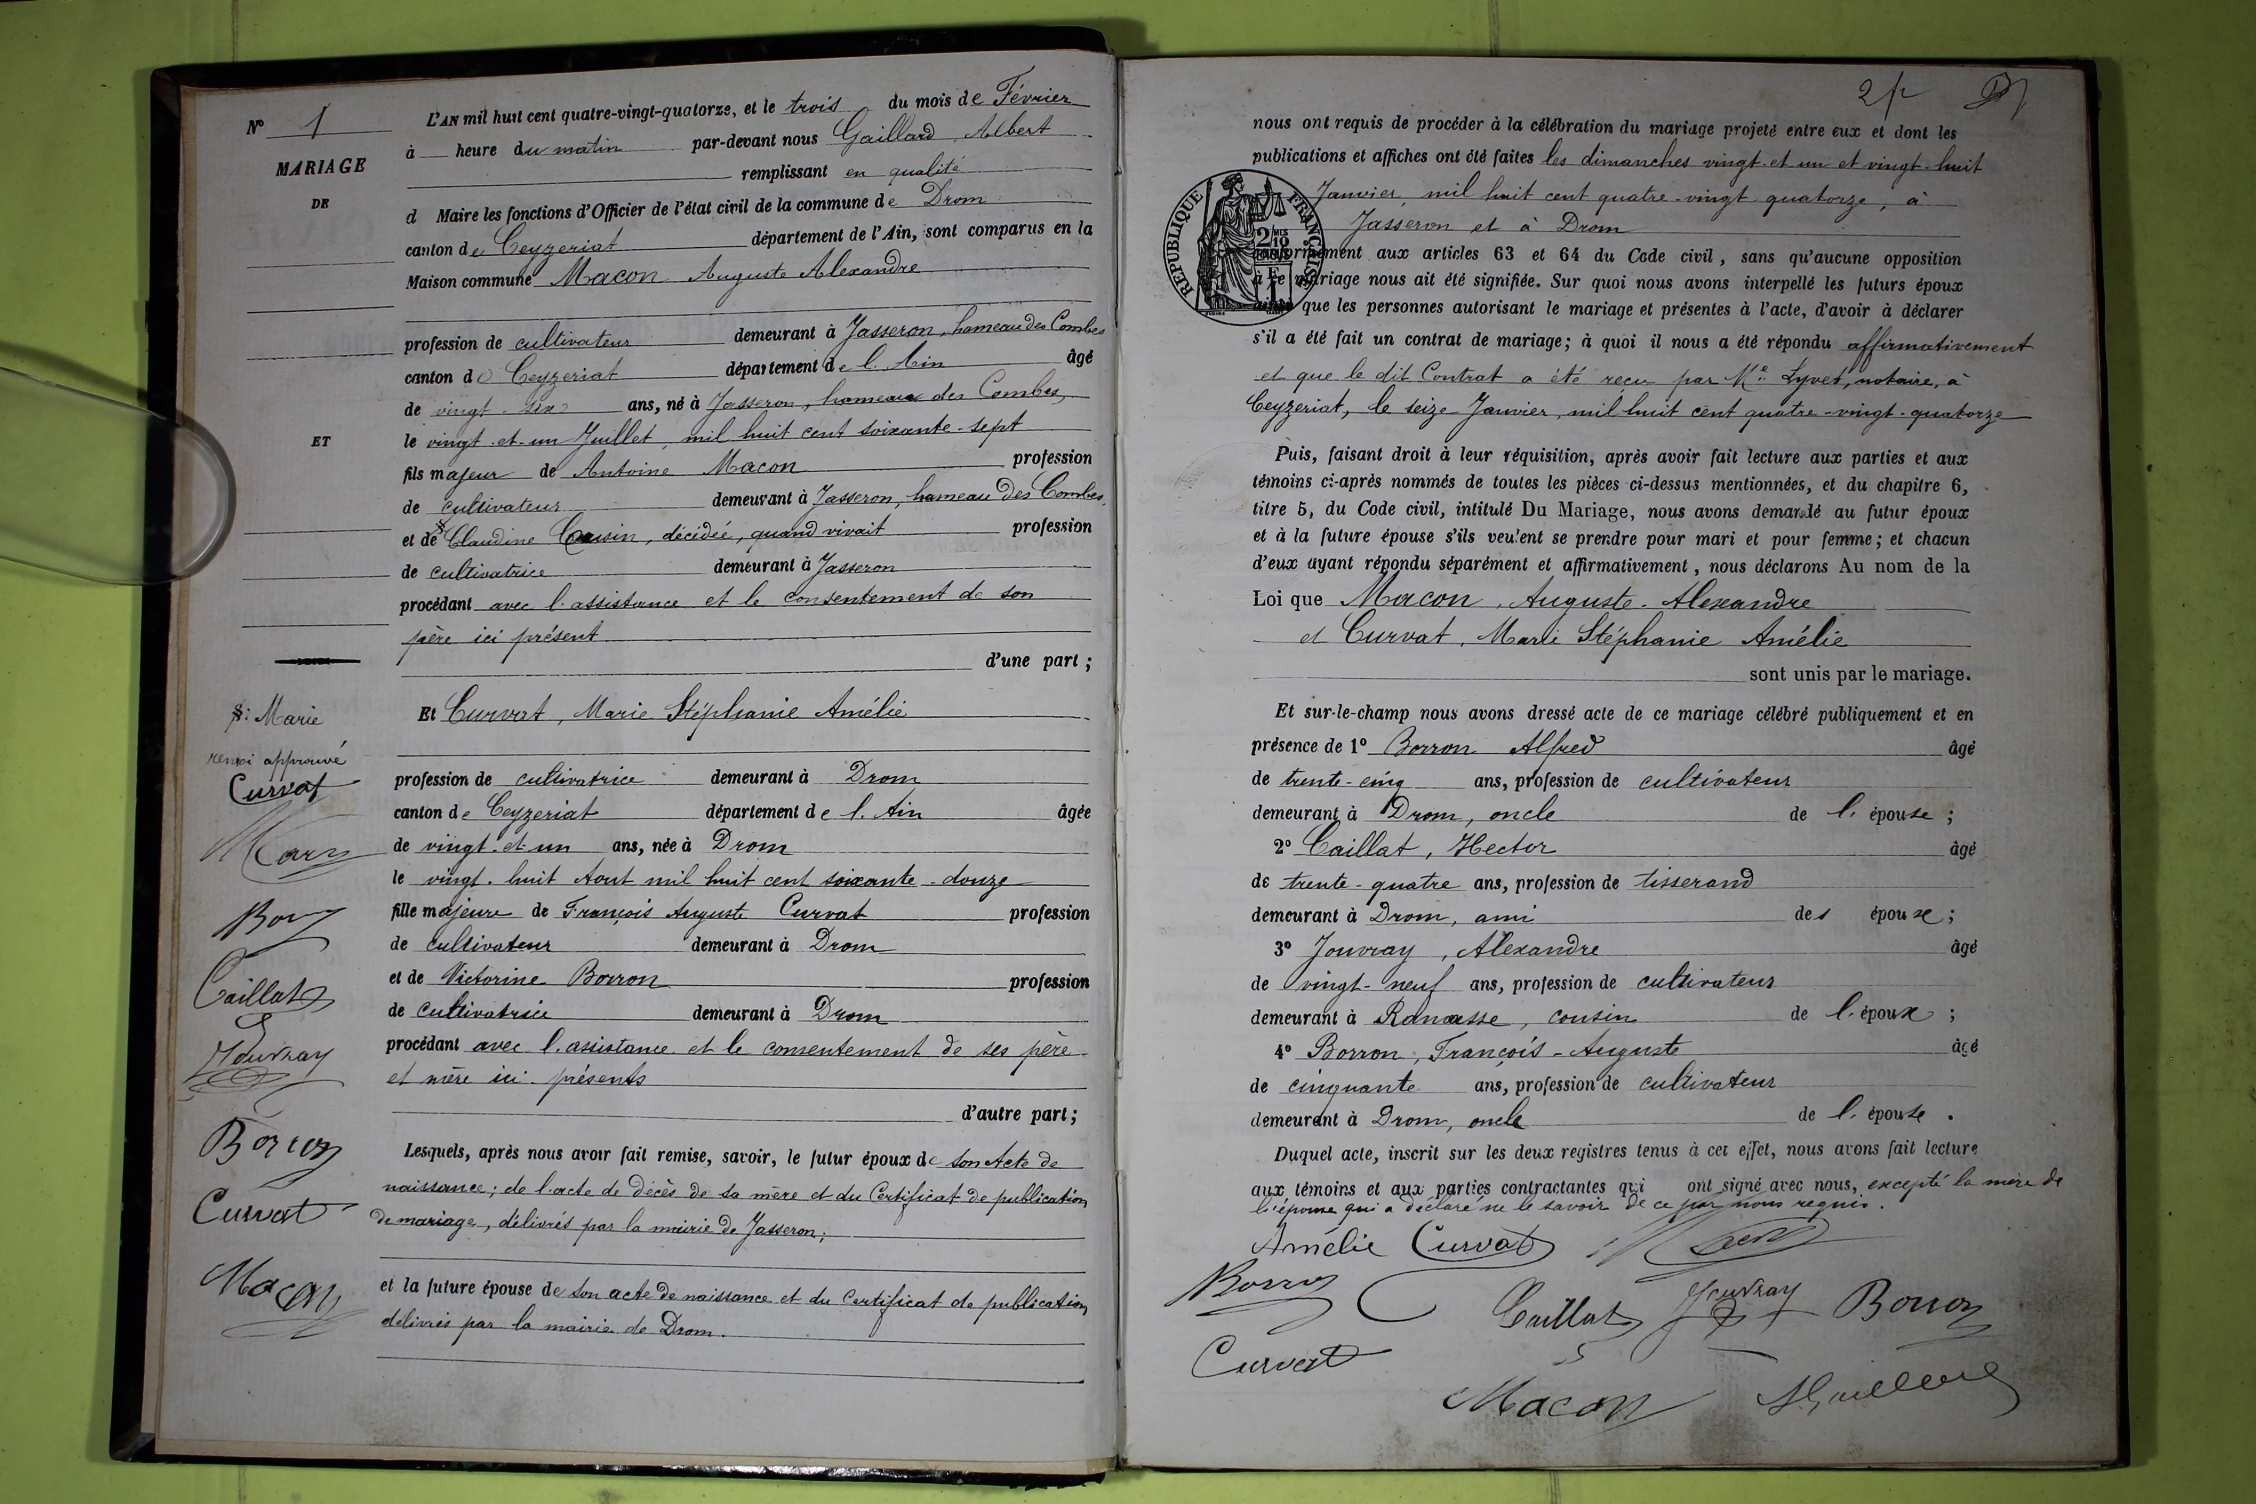 N° 1
MARIAGE
DE
ET
L'AN mil huit cent quatre-vingt-quatorze, et le trois du mois de Février
à heure du matin par-devant nous Gaillard Albert
remplissant en qualité
d Maire les fonctions d'Officier de l'état civil de la commune de Drom
canton de Ceyzeriat département de l'Ain, sont comparus en la
Maison commune Macon Auguste Alexandre
profession de cultivateur demeurant à Jasseron, hameau des Combes
canton de Ceyzeriat département de l'Ain âgé
de vingt-six ans, né à Jasseron, hameau des Combes,
le vingt-et-un Juillet, mil huit cent soixante-sept
fils majeur de Antoine Macon profession
de cultivateur demeurant à Jasseron, hameau des Combes,
et de Claudine Cousin, décidée, quand vivait profession
de cultivatrice demeurant à Jasseron
procédant avec l'assistance et le consentement de son
père ici présent
d'une part;
Et Curvat, Marie Stéphanie Amélie
profession de cultivatrice demeurant à Drom
canton de Ceyzeriat département de l'Ain âgée
de vingt-et-un ans, née à Drom
le vingt-huit Aout mil huit cent soixante-douze
fille majeure de François Auguste Curvat profession
de cultivateur demeurant à Drom
et de Victorine Borron profession
de cultivatrice demeurant à Drom
procédant avec l'assistance et le consentement de ses père
et mère ici présents
d'autre part;
Lesquels, après nous avoir fait remise, savoir, le futur époux de son Acte de
naissance; de l'acte de décès de sa mère et du Certificat de publication
de mariage, délivrés par la mairie de Jasseron;
et la future épouse de son acte de naissance et du Certificat de publication
délivrés par la mairie de Drom.
: Marie
renvoi approuvé
Curvat
Macon
Borron
Caillat
Jouvray
Borron
Curvat
Macon
2
nous ont requis de procéder à la célébration du mariage projeté entre eux et dont les
publications et affiches ont été faites les dimanches vingt-et-un et vingt-huit
Janvier, mil huit cent quatre-vingt quatorze, à
Jasseron et à Drom
RÉPUBLIQUE FRANÇAISE
conformément aux articles 63 et 64 du Code civil, sans qu'aucune opposition
à ce mariage nous ait été signifiée. Sur quoi nous avons interpellé les futurs époux
ainsi que les personnes autorisant le mariage et présentes à l'acte, d'avoir à déclarer
s'il a été fait un contrat de mariage; à quoi il nous a été répondu affirmativement
et que le dit Contrat a été reçu par Me Lyvet, notaire, à
Ceyzeriat, le seize Janvier, mil huit cent quatre-vingt-quatorze
Puis, faisant droit à leur réquisition, après avoir fait lecture aux parties et aux
témoins ci-après nommés de toutes les pièces ci-dessus mentionnées, et du chapitre 6,
titre 5, du Code civil, intitulé Du Mariage, nous avons demandé au futur époux
et à la future épouse s'ils veulent se prendre pour mari et pour femme; et chacun
d'eux ayant répondu séparément et affirmativement, nous déclarons Au nom de la
Loi que Macon, Auguste-Alexandre
et Curvat, Marie Stéphanie Amélie
sont unis par le mariage.
Et sur-le-champ nous avons dressé acte de ce mariage célébré publiquement et en
présence de 1° Borron Alfred âgé
de trente-cinq ans, profession de cultivateur
demeurant à Drom, oncle de l'épouse;
2° Caillat, Hector âgé
de trente-quatre ans, profession de tisserand
demeurant à Drom, ami des épouse;
3° Jouvray, Alexandre âgé
de vingt-neuf ans, profession de cultivateur
demeurant à Ramasse, cousin de l'époux;
4° Borron, François-Auguste âgé
de cinquante ans, profession de cultivateur
demeurant à Drom, oncle de l'épouse.
Duquel acte, inscrit sur les deux registres tenus à cet effet, nous avons fait lecture
aux témoins et aux parties contractantes qui ont signé avec nous, excepté la mère de
l'épouse qui a déclaré ne le savoir de ce par nous requis.
Amélie Curvat Macon
Borron Caillat Jouvray Borron
Curvat
Macon AGaillard